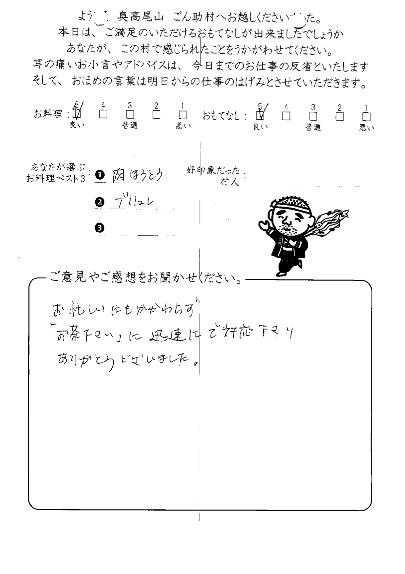 ようこそ 奥高尾山 ごん助村へお越しくださいました。
本日は、ご満足のいただけるおもてなしが出来ましたでしょうか
あなたが、この村で感じられたことをうかがわせてください。
耳の痛いお小言やアドバイスは、今日までのお仕事の反省といたします
そして、おほめの言葉は明日からの仕事のはげみとさせていただきます。
お料理: 5 4 3 2 1 おもてなし: 5 4 3 2 1
良い 普通 悪い 良い 普通 悪い
あなたが選ぶ
お料理ベスト3
❶ ほうとう
❷ ブリュレ
❸
好印象だった
村人
ご意見やご感想をお聞かせください。
お忙しいにもかかわらず
「お茶下さい」に迅速にご対応下さり
ありがとうございました。